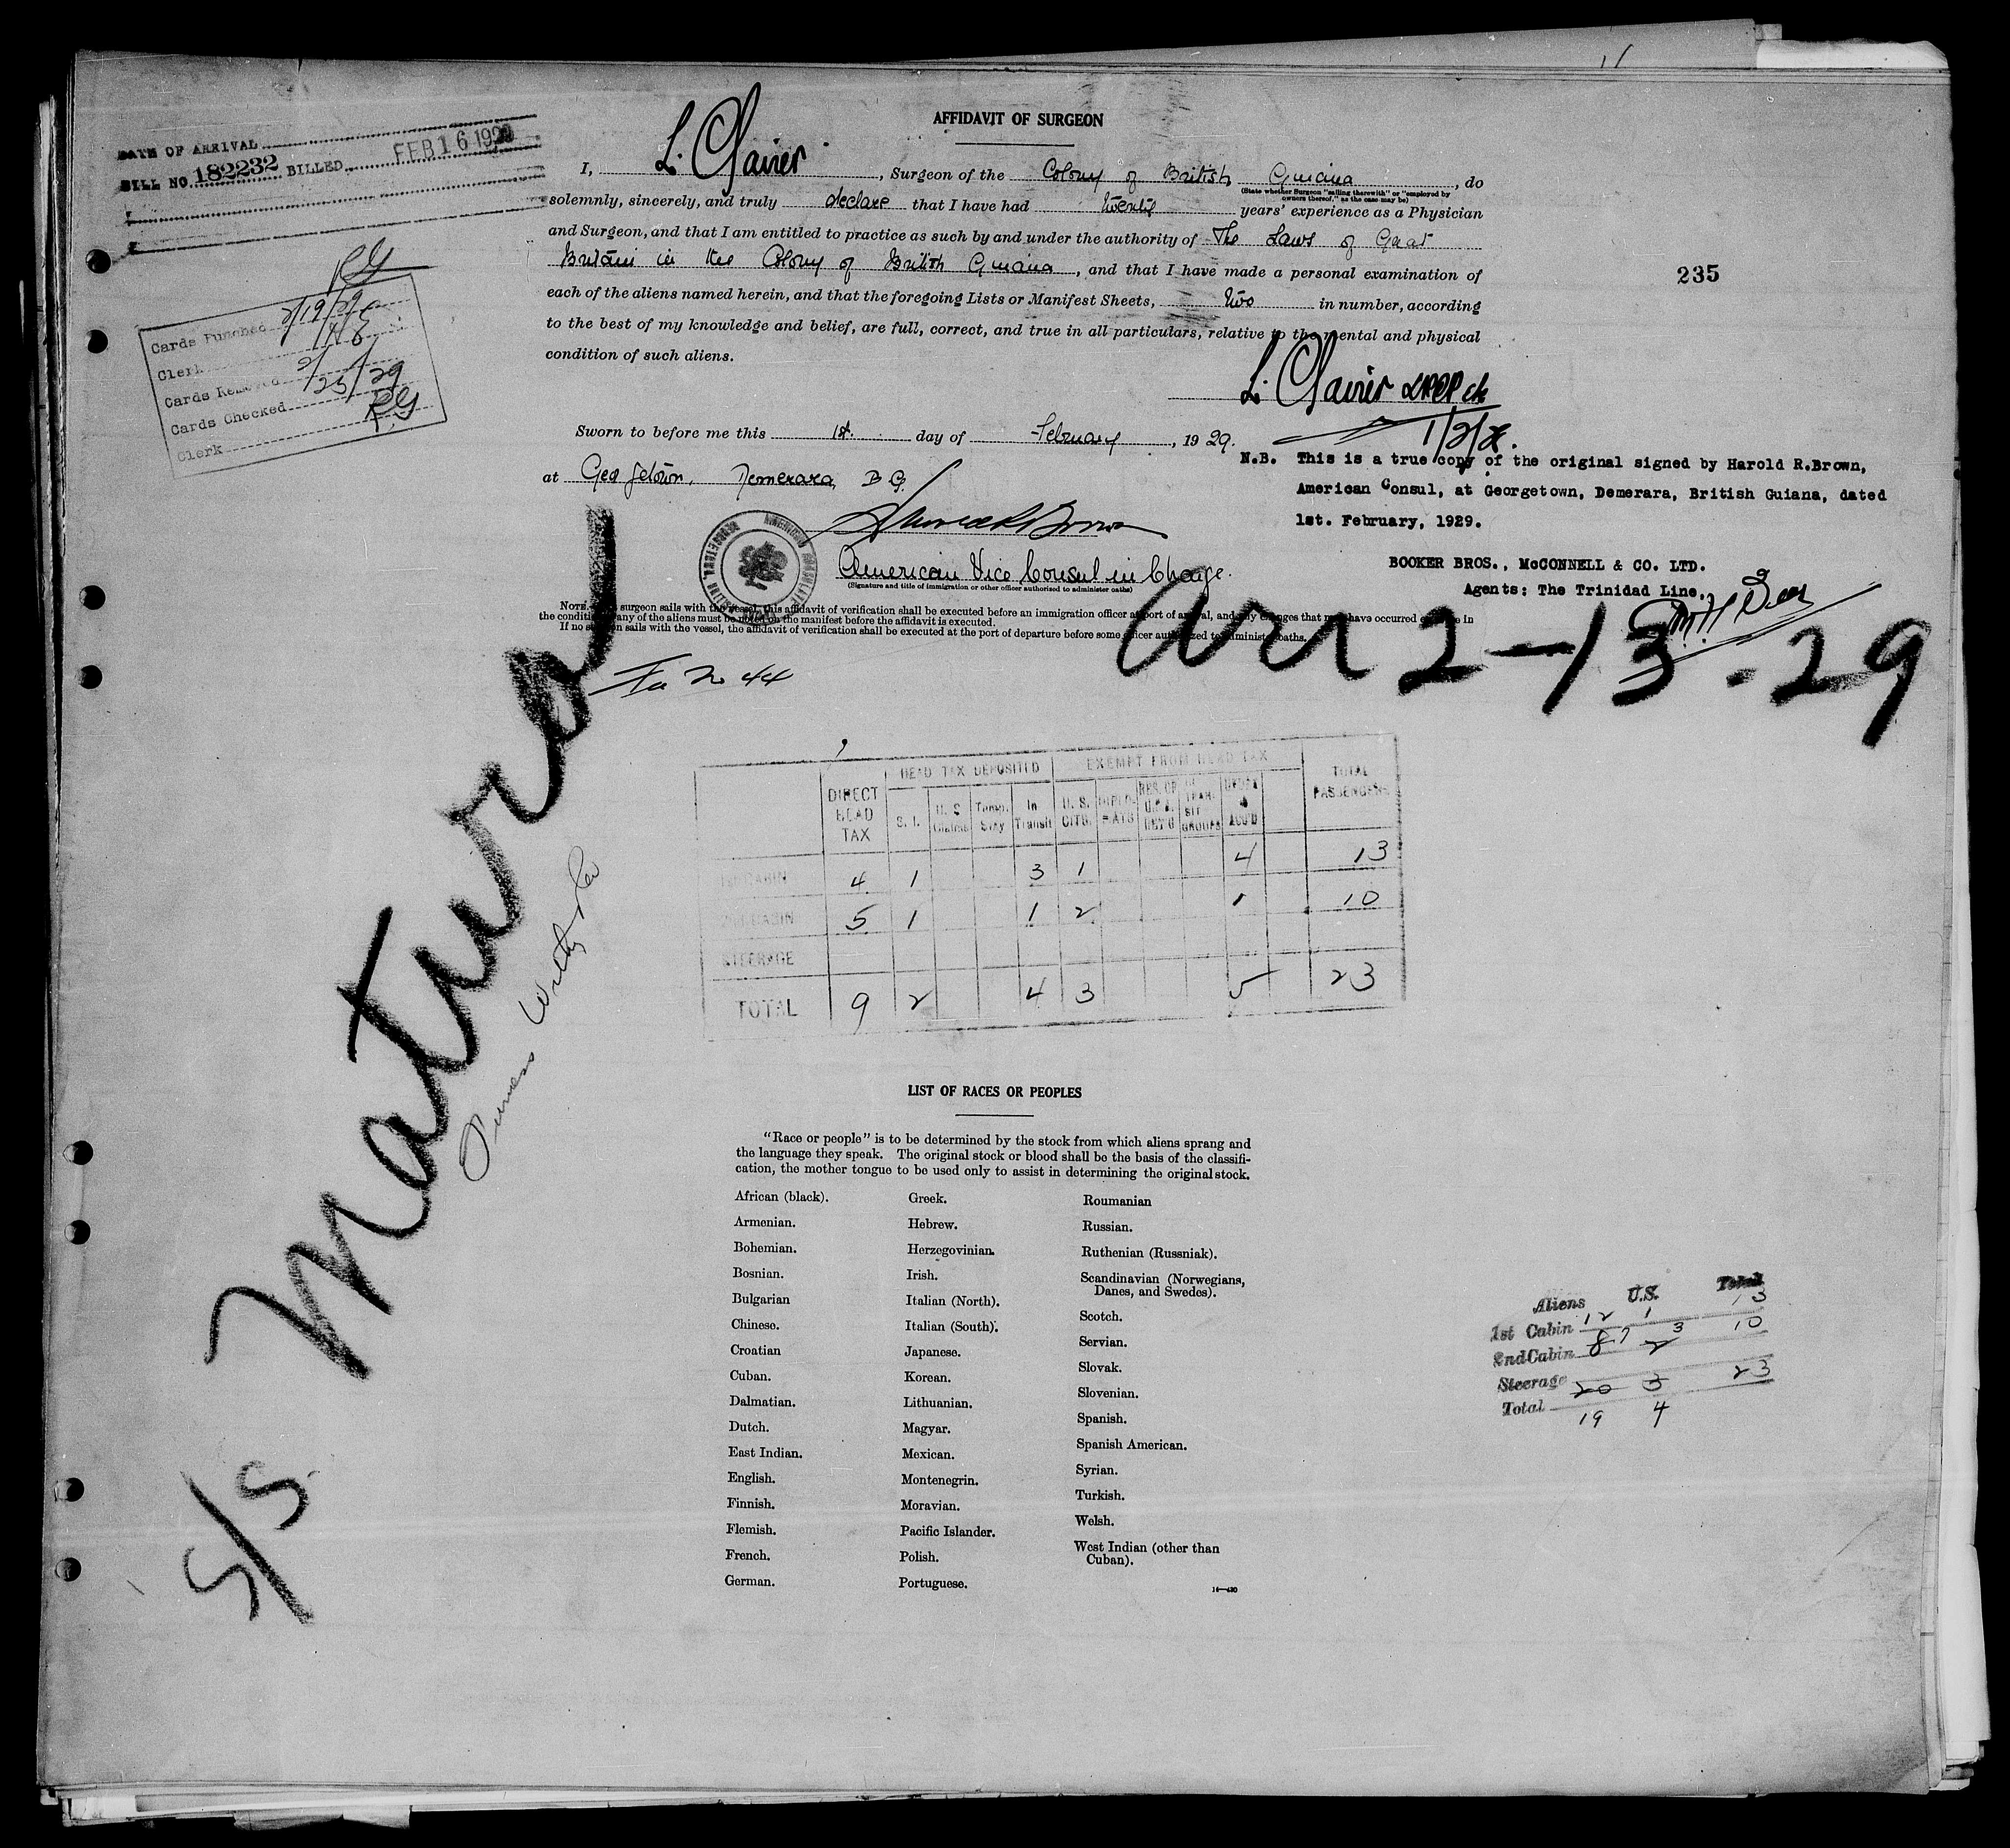 AFFIDAVIT OF SURGEON
DATE OF ARRIVAL
BILL NO. 182232 BILLED FEB 16 1929
I, L. , Surgeon of the Colony of British Guiana , do
(State whether Surgeon "sailing therewith" or "employed by
owners thereof," as the case may be)
solemnly, sincerely, and truly declare that I have had twenty years' experience as a Physician
and Surgeon, and that I am entitled to practice as such by and under the authority of The Laws of Great
Britain in the Colony of British Guiana , and that I have made a personal examination of
each of the aliens named herein, and that the foregoing Lists or Manifest Sheets, two in number, according
to the best of my knowledge and belief, are full, correct, and true in all particulars, relative to the mental and physical
condition of such aliens.
235
RG
Cards Punched 2/19/29
Clerk
Cards Removed
Cards Checked 2/25/29
Clerk RG
L.
Sworn to before me this 1st. day of February , 1929.
at Georgetown, Demerara, B G.
Harold R Brown
American Vice Consul in Charge.
(Signature and title of immigration or other officer authorized to administer oaths)
N.B. This is a true copy of the original signed by Harold R.Brown,
American Consul, at Georgetown, Demerara, British Guiana, dated
1st. February, 1929.
BOOKER BROS., McCONNELL & CO. LTD.
Agents: The Trinidad Line.
NOTE. surgeon sails with the vessel, this affidavit of verification shall be executed before an immigration officer at port of arrival, and any changes that may have occurred in
the condition of any of the aliens must be noted on the manifest before the affidavit is executed.
If no surgeon sails with the vessel, the affidavit of verification shall be executed at the port of departure before some officer authorized to administer oaths.
arr 2-13-29
44
S/S Matura
Furness Withy
HEAD TAX DEPOSITED EXEMPT FROM HEAD TAX
DIRECT HEAD TAX S. I. U. S. Claims Temp. Stay In Transit U. S. CITS. DIPLO-MATS RES. OF U.S.A. RET'G TRAN-SIT GROUPS TOTAL PASSENGERS
1ST CABIN 4 1 3 1 4 13
2ND CABIN 5 1 1 2 1 10
STEERAGE
TOTAL 9 2 4 3 5 23
LIST OF RACES OR PEOPLES
"Race or people" is to be determined by the stock from which aliens sprang and
the language they speak. The original stock or blood shall be the basis of the classifi-
cation, the mother tongue to be used only to assist in determining the original stock.
African (black).
Armenian.
Bohemian.
Bosnian.
Bulgarian
Chinese.
Croatian
Cuban.
Dalmatian.
Dutch.
East Indian.
English.
Finnish.
Flemish.
French.
German.
Greek.
Hebrew.
Herzegovinian.
Irish.
Italian (North).
Italian (South).
Japanese.
Korean.
Lithuanian.
Magyar.
Mexican.
Montenegrin.
Moravian.
Pacific Islander.
Polish.
Portuguese.
Roumanian
Russian.
Ruthenian (Russniak).
Scandinavian (Norwegians,
Danes, and Swedes).
Scotch.
Servian.
Slovak.
Slovenian.
Spanish.
Spanish American.
Syrian.
Turkish.
Welsh.
West Indian (other than
Cuban).
Aliens U.S. Total
1st Cabin 12 1 13
2nd Cabin 8 7 2 3 10
Steerage 20 3 23
Total 19 4